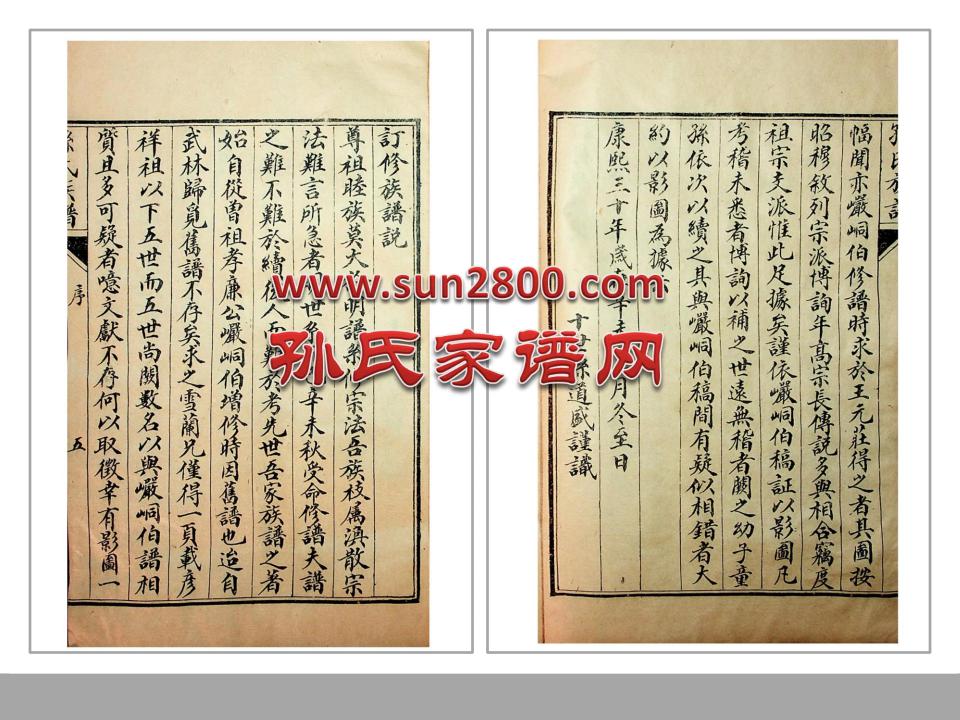 訂修族譜說
尊祖睦族莫大於明譜系修宗法吾族枝属涣散宗
法難言所急者世系辛未秋受命修譜夫譜
之難不難於續後人而難於考先世吾家族譜之著
始自從曾祖孝廉公巗峒伯增修時因舊譜也迨自
武林歸覓舊譜不存矣求之雪蘭兄僅得一頁載彥
祥祖以下五世而五世尚闕數名以與巗峒伯譜相
質且多可疑者噫文獻不存何以取徵幸有影圖一
孫氏族譜
序
五
幅聞亦巗峒伯修譜時求於王元莊得之者其圖按
昭穆敘列宗派博詢年高宗長傳說多與相合竊度
祖宗支派惟此足據矣謹依巗峒伯稿証以影圖凡
考稽未悉者博詢以補之世遠無稽者闕之幼子童
孫依次以續之其與巗峒伯稿間有疑似相錯者大
約以影圖為據
康熙三十年歲辛未月冬至日
十世孫道盛謹識
孫氏族譜
www.sun2800.com
孙氏家谱网